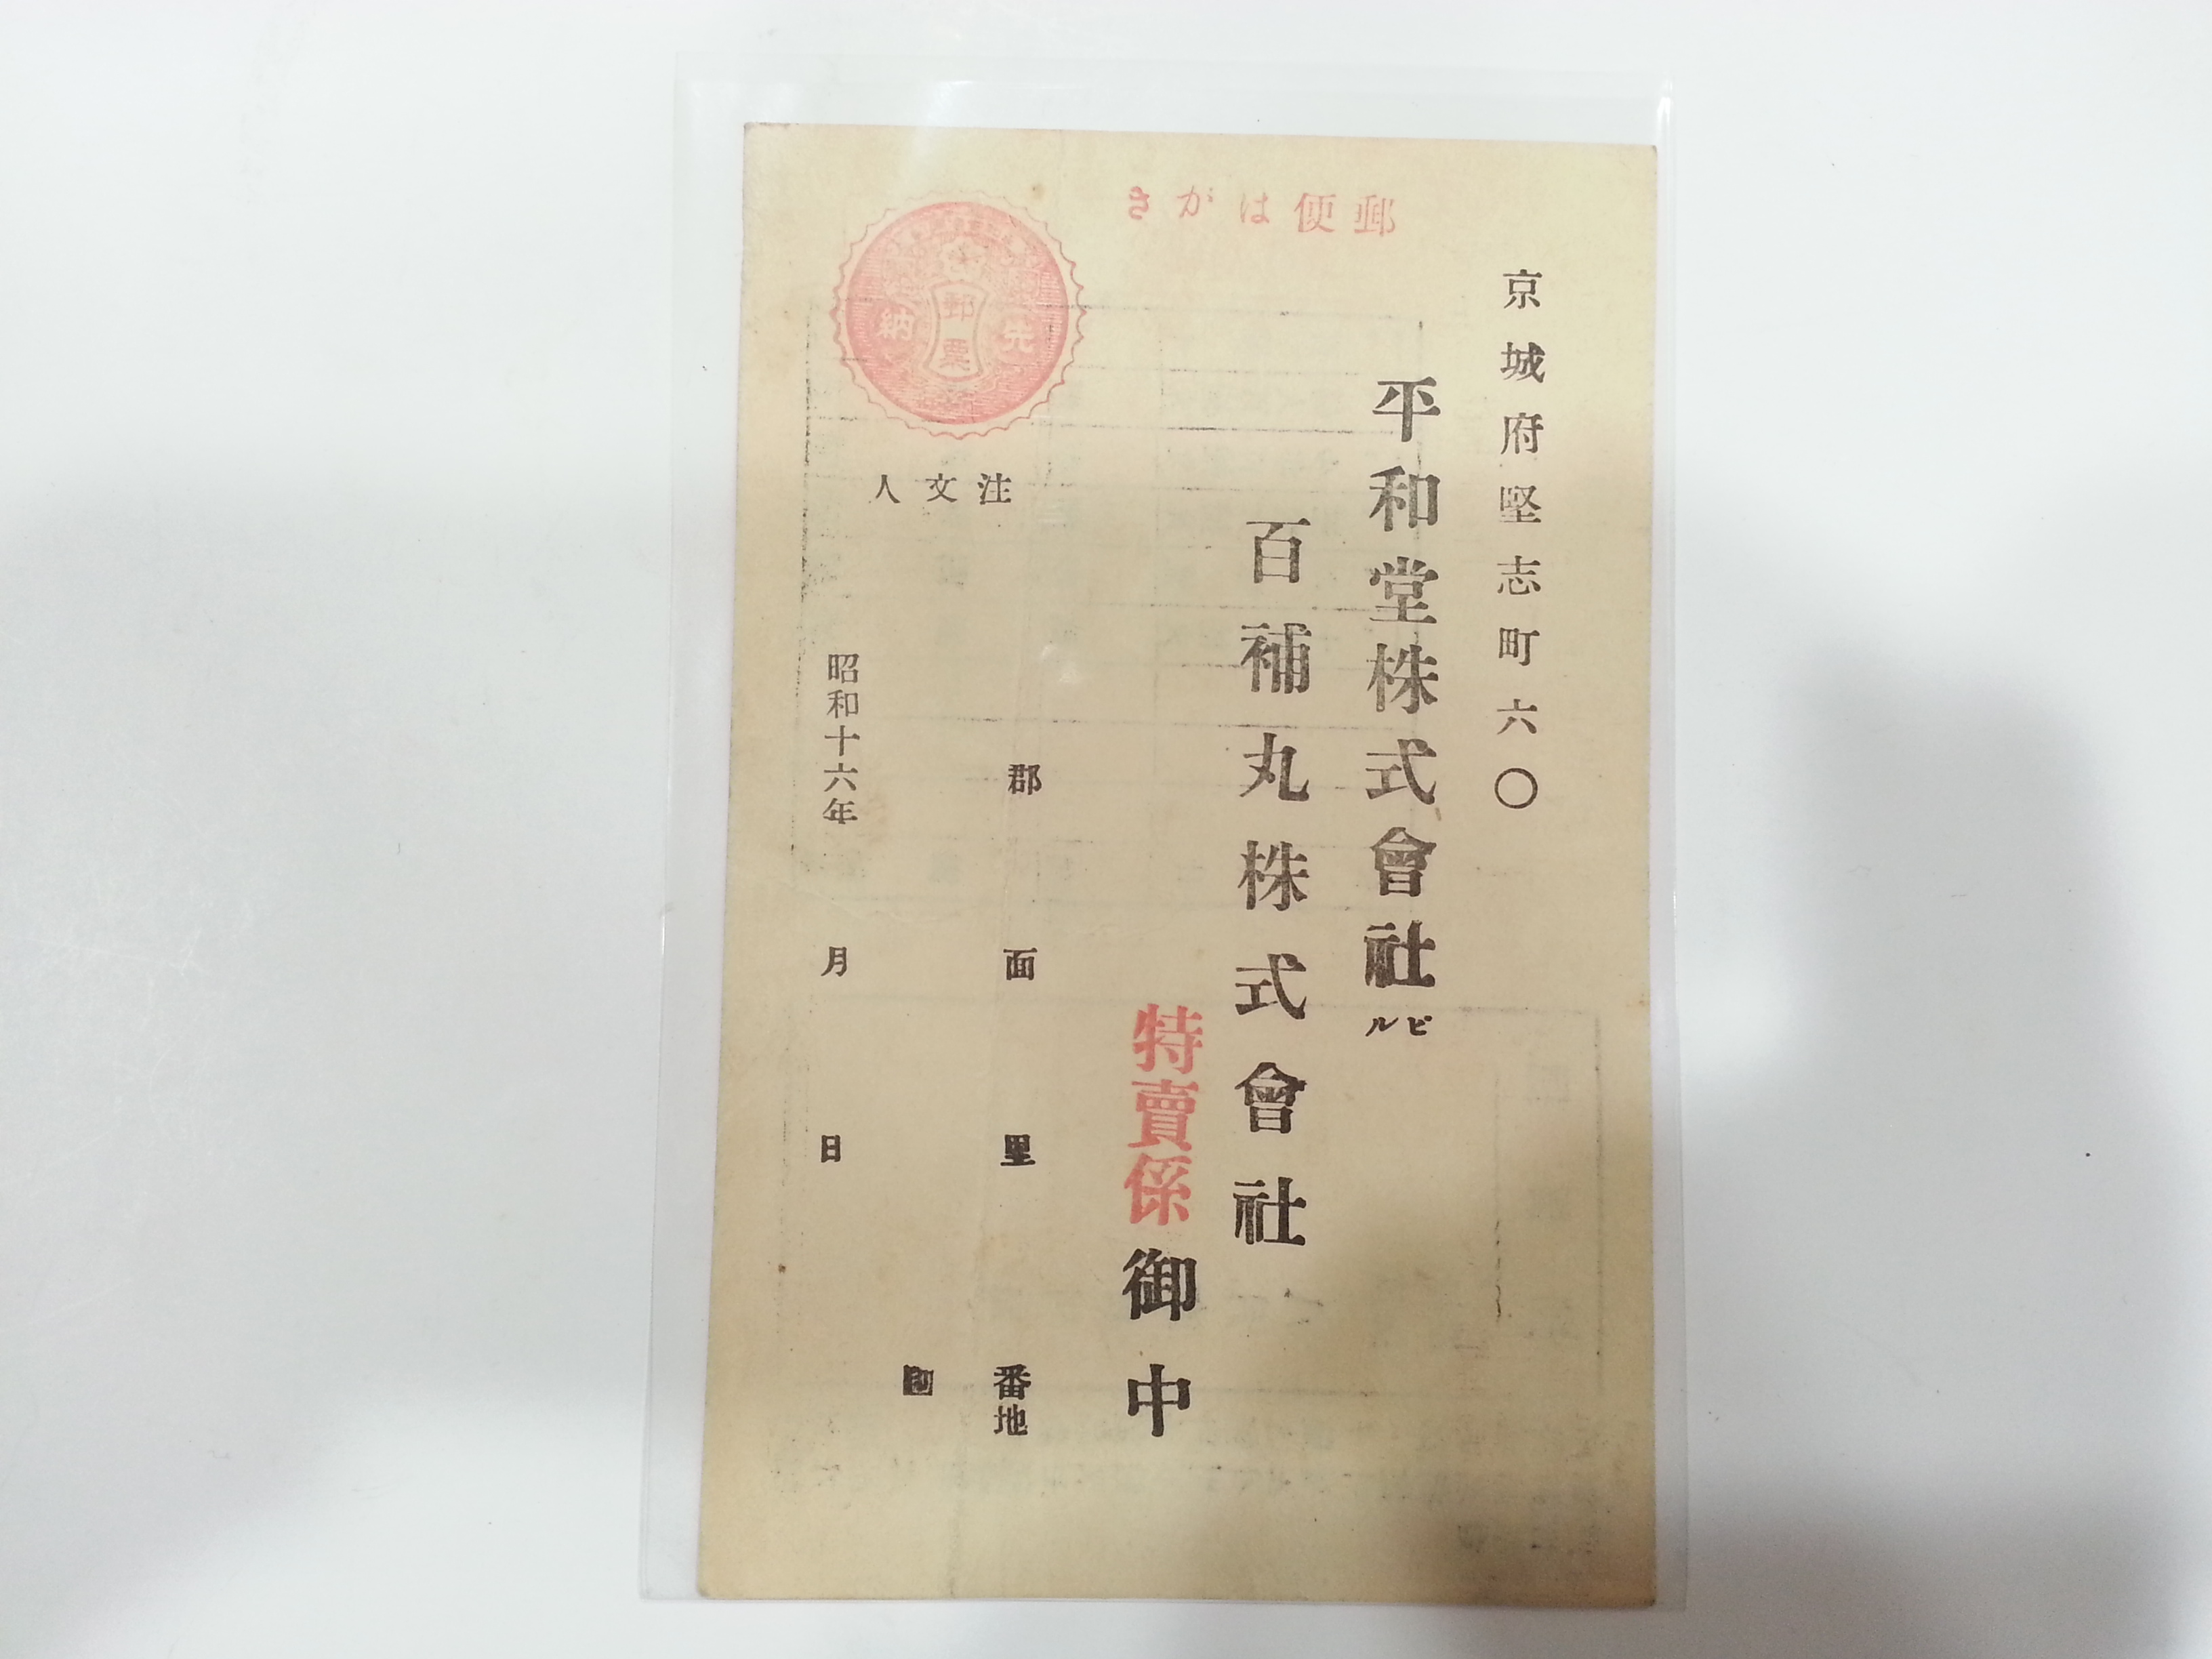 郵便はがき
郵票
先納
京城府堅志町六〇
平和堂株式會社ビル
百補丸株式會社
特賣係御中
注文人
郡面里番地
印
昭和十六年月日